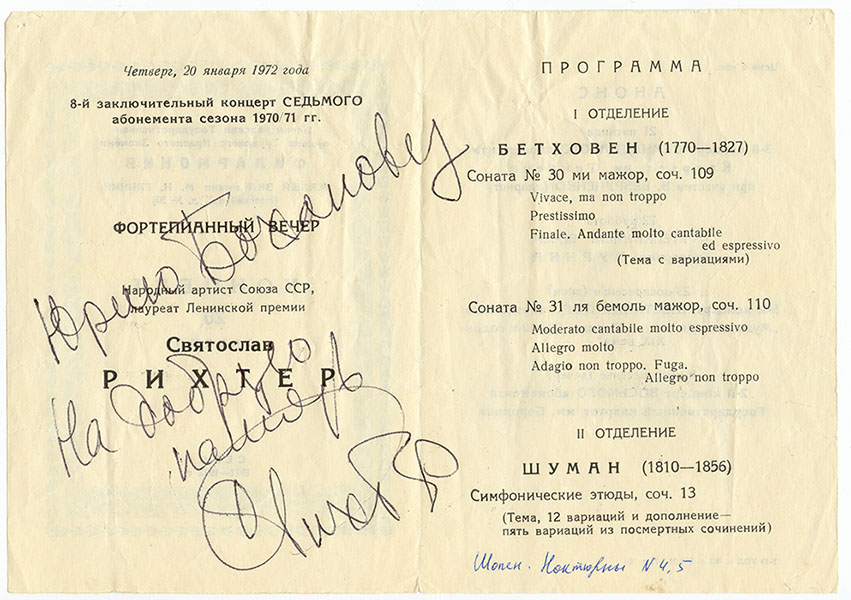 Четверг, 20 января 1972 года
8-й заключительный концерт СЕДЬМОГО
абонемента сезона 1970/71 гг.
ФОРТЕПИАННЫЙ ВЕЧЕР
Народный артист Союза ССР,
лауреат Ленинской премии
Святослав
РИХТЕР
Юрию
На добрую
память
Рихтер
ПРОГРАММА
I ОТДЕЛЕНИЕ
БЕТХОВЕН (1770—1827)
Соната № 30 ми мажор, соч. 109
Vivace, ma non troppo
Prestissimo
Finale. Andante molto cantabile
ed espressivo
(Тема с вариациями)
Соната № 31 ля бемоль мажор, соч. 110
Moderato cantabile molto espressivo
Allegro molto
Adagio non troppo. Fuga.
Allegro non troppo
II ОТДЕЛЕНИЕ
ШУМАН (1810—1856)
Симфонические этюды, соч. 13
(Тема, 12 вариаций и дополнение—
пять вариаций из посмертных сочинений)
Шопен. Ноктюрны N 4, 5